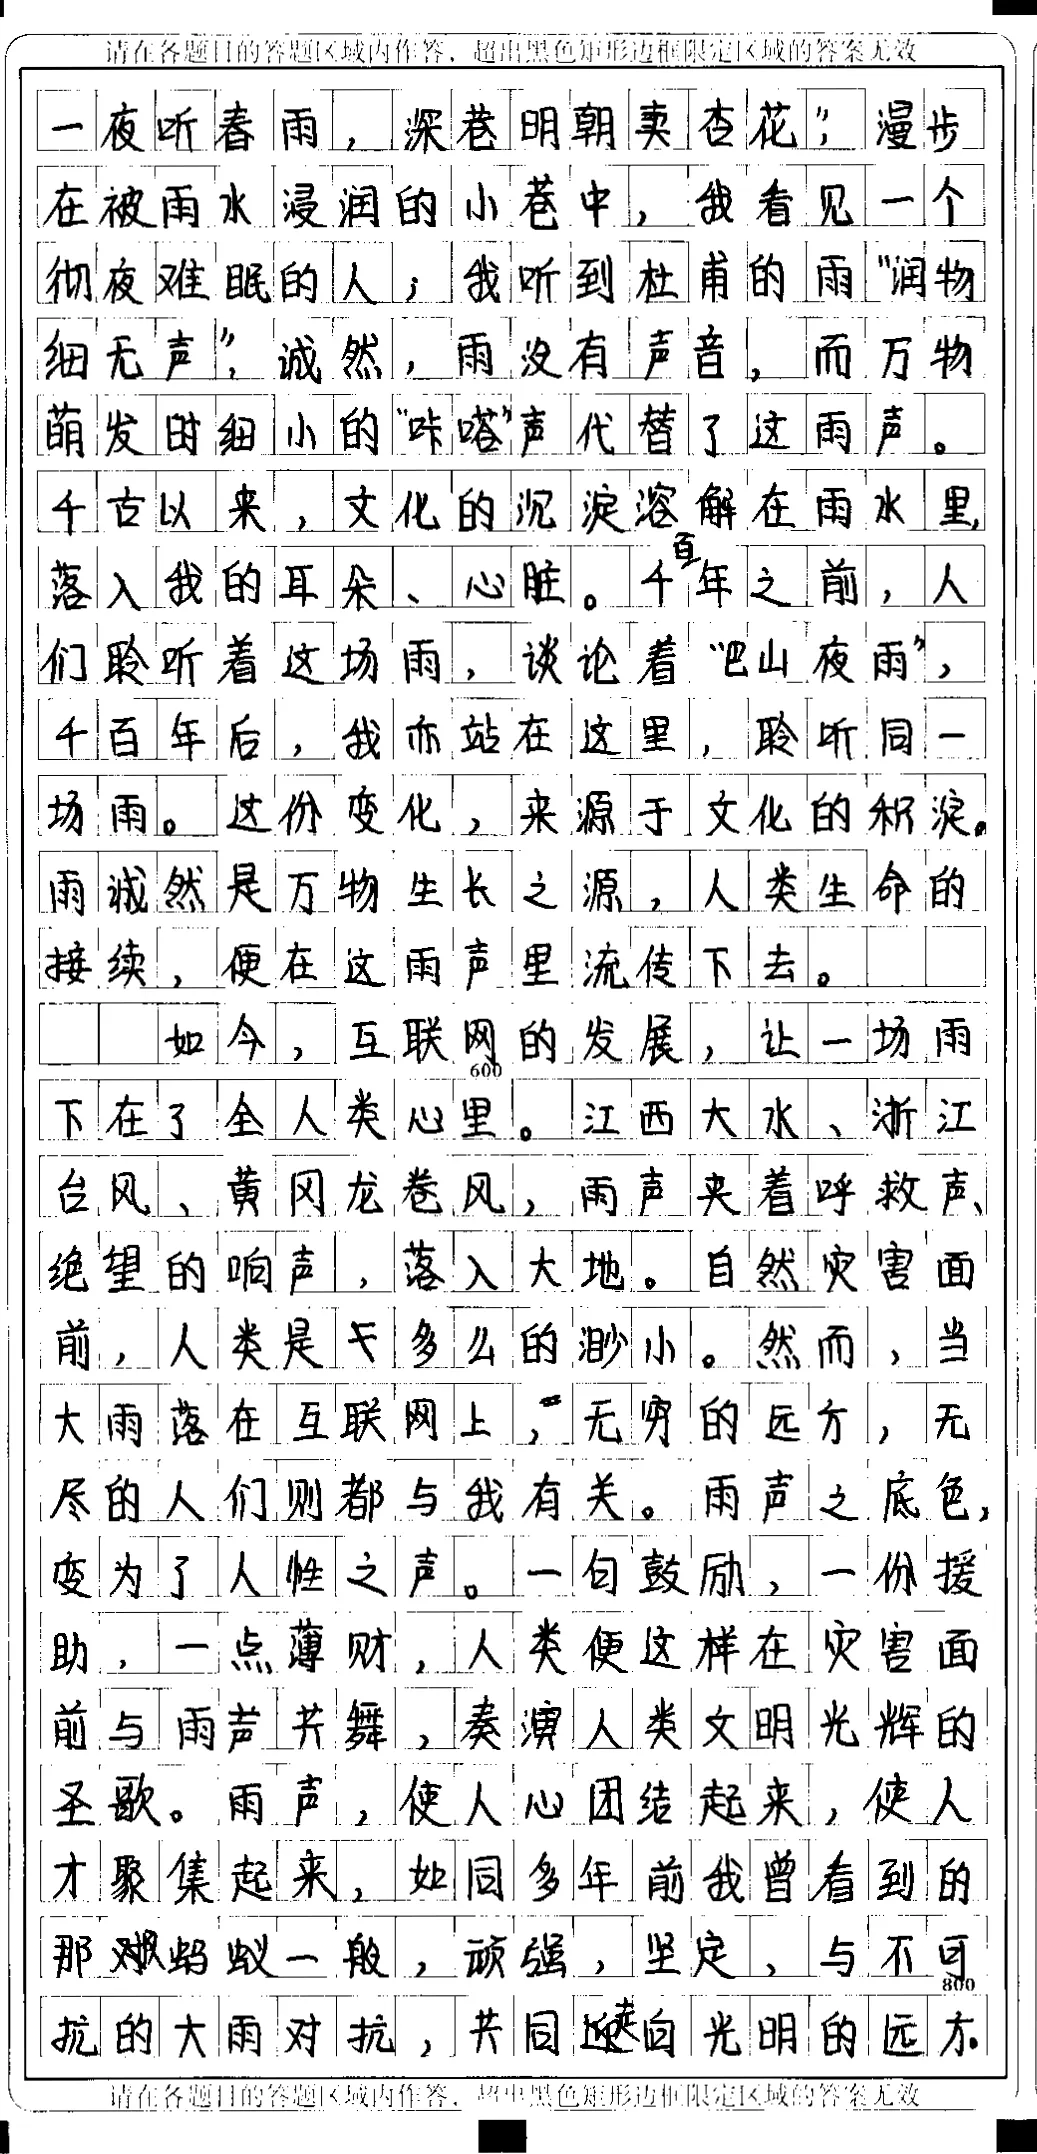 请在各题目的答题区域内作答，超出黑色矩形边框限定区域的答案无效
一夜听春雨，深巷明朝卖杏花”，漫步
在被雨水浸润的小巷中，我看见一个
彻夜难眠的人；我听到杜甫的雨“润物
细无声”，诚然，雨没有声音，而万物
萌发时细小的“咔嗒”声代替了这雨声。
千古以来，文化的沉淀溶解在雨水里，
落入我的耳朵、心脏。千百年之前，人
们聆听着这场雨，谈论着“巴山夜雨”，
千百年后，我亦站在这里，聆听同一
场雨。这份变化，来源于文化的积淀。
雨诚然是万物生长之源，人类生命的
接续，便在这雨声里流传下去。
如今，互联网的发展，让一场雨
600
下在了全人类心里。江西大水、浙江
台风、黄冈龙卷风，雨声夹着呼救声、
绝望的响声，落入大地。自然灾害面
前，人类是多么的渺小。然而，当
大雨落在互联网上，无穷的远方，无
尽的人们则都与我有关。雨声之底色，
变为了人性之声。一句鼓励，一份援
助，一点薄财，人类便这样在灾害面
前与雨声共舞，奏演人类文明光辉的
圣歌。雨声，使人心团结起来，使人
才聚集起来，如同多年前我曾看到的
那蚂蚁一般，顽强，坚定，与不可
800
抗的大雨对抗，共同走向光明的远方.
请在各题目的答题区域内作答，超出黑色矩形边框限定区域的答案无效